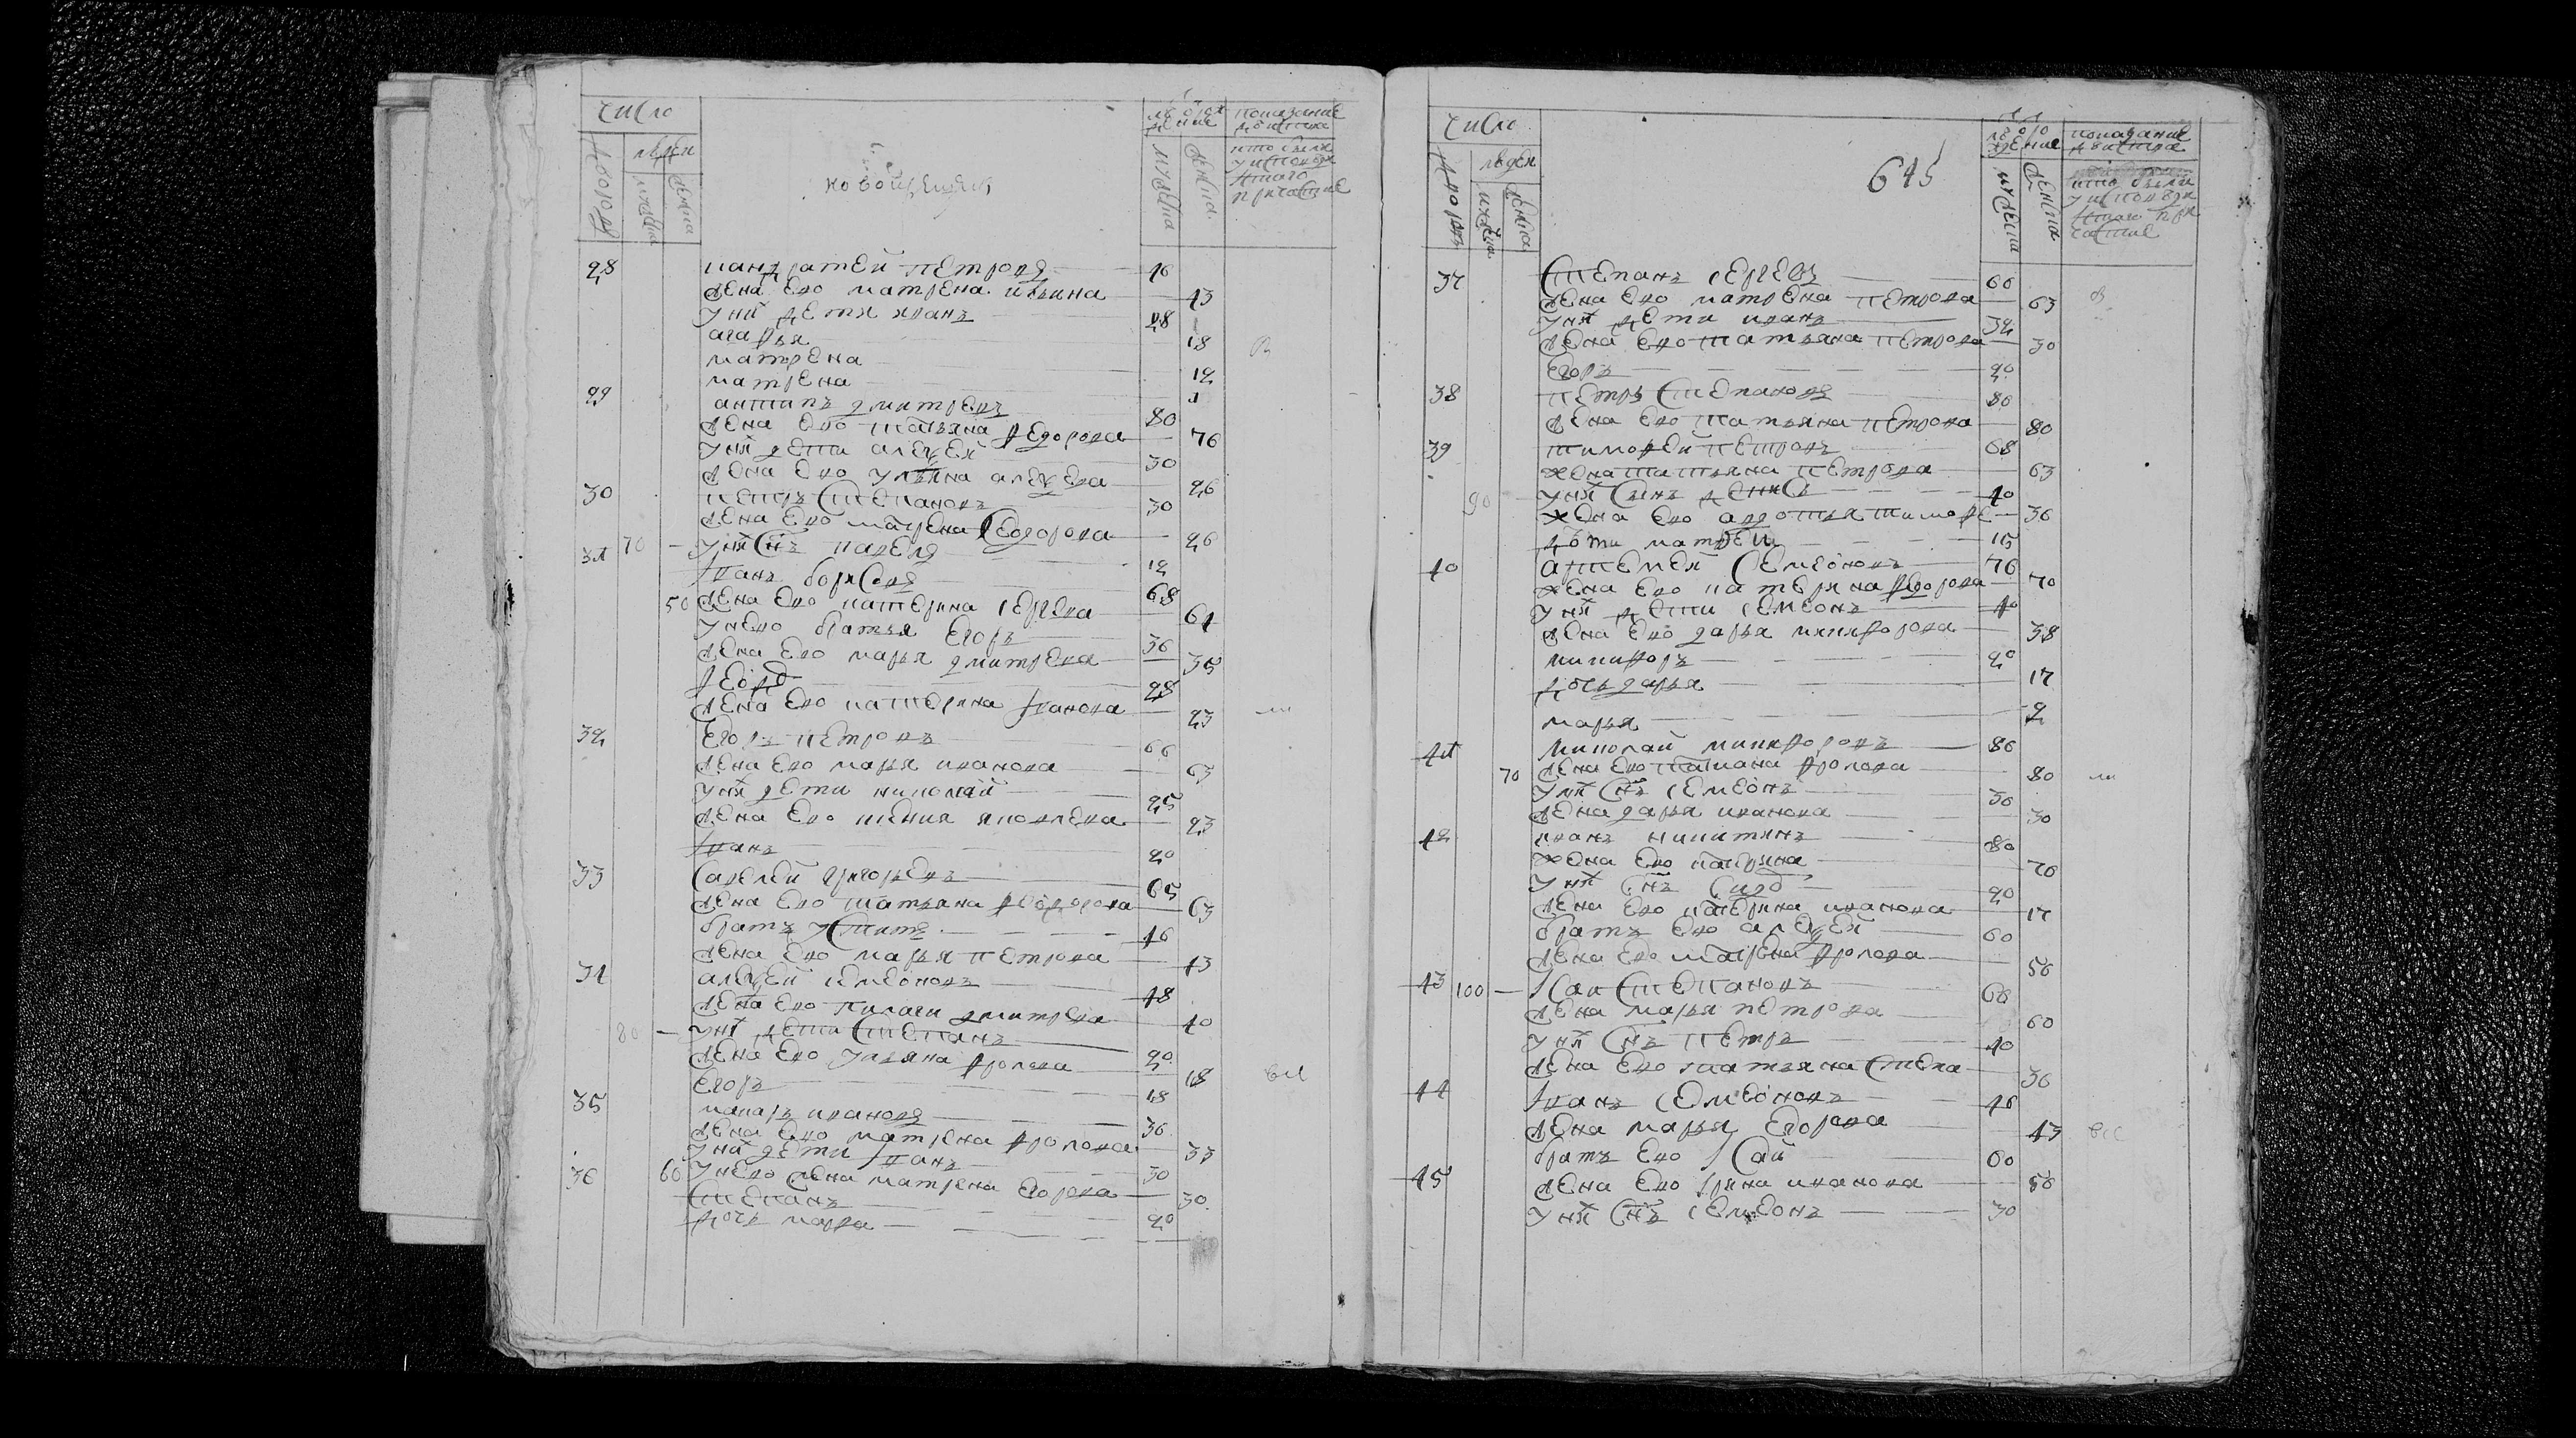 число
дворовъ
людей
мужеска
женска
новокрещены
мужеска
женска
показание
что были
у исповеди
28 панкратей петровъ 46
жена ево матрена ильина 43
у них дети иванъ 28
агафья 18
матрена 12
матрена 1
29 антипъ дмитревъ 80
жена ево татьяна федорова 76
у них дети алексей 30
жена ево ульяна алексеева 26
30 петръ степановъ 30
жена ево матрена федорова 26
70 у них снъ павелъ 12
31 иванъ борисовъ 68
50 жена ево катерина сергева 64
у нево братья егоръ 36
жена ево марья дмитрева 35
федоръ 28
жена ево катерина иванова 23
32 егоръ петровъ 66
жена ево марья иванова 63
у них дети николай 25
жена ево яковлева 23
иванъ 20
33 савелей григорьевъ 65
жена ево татьяна федорова 63
братъ устинъ 46
жена ево марья петрова 43
34 алексей семеоновъ 48
жена ево пилаги дмитрева 40
80 у них дети степанъ 20
жена ево ульяна фролова 18
егоръ 18
35 макаръ ивановъ 36
жена ево матрена фролова 33
у них дети иванъ 30
36 60 у нево жена матрена егорева 30
степанъ 20
дочь марья
645
число
дворовъ
людей
мужеска
женска
мужеска
женска
показание
что были
у исповеди
37 степанъ сергевъ 66
жена ево матрена петрова 63
у них дети иванъ 32
жена ево татьяна петрова 30
егоръ 20
38 петръ степановъ 80
жена ево татьяна петрова 80
39 тимофей петровъ 68
жена татьяна петрова 63
90 у них сынъ денисъ 40
жена ево авдотья тимофе 36
дети матвей 15
40 артемей семеоновъ 76
жена ево катерина федорова 70
у них дети семеонъ 40
жена ево дарья никифорова 38
никифоръ 20
дочь дарья 17
марья 2
41 николай никифоровъ 86
70 жена ево татиана фролова 80
у них снъ семеонъ 30
жена дарья иванова 30
42 иванъ никитинъ 80
жена ево катерина 70
у них снъ сидоръ 20
жена ево катерина иванова 17
братъ ево алексей 60
жена ево матрена фролова 56
43 100 исаи степановъ 68
жена марья петрова 60
у них снъ петръ 40
жена ево татьяна степа 36
44 иванъ семеоновъ 46
жена марья егорева 43
братъ ево исай 60
45 жена ево ирина иванова 56
у них снъ семеонъ 30